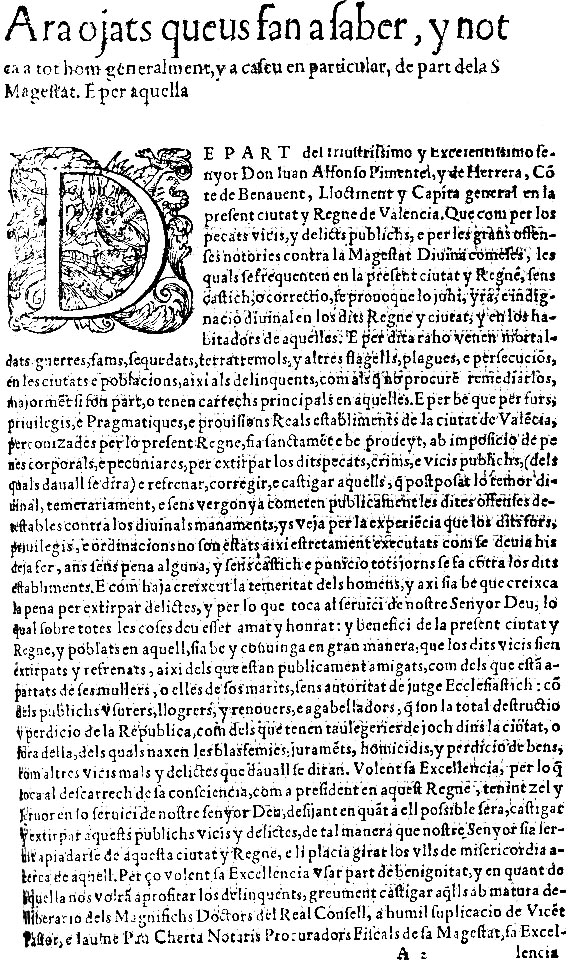 Ara ojats queus fan a saber, y not
ca a tot hom generalment, y a cascu en particular, de part de la S
Magestat. E per aquella
DE PART del Illustrissimo y Excelentissimo se-
nyor Don Iuan Alfonso Pimentel, y de Herrera, Cõ
te de Benauent, Lloctinent y Capita general en la
present ciutat y Regne de Valencia. Que com per los
pecats vicis, y delictes publichs, e per les grans offen-
ses notories contra la Magestat Diuina comeses, les
quals se frequenten en la present ciutat y Regne, sens
castich, o correctio, se prouoque lo juhi, yra, e indig-
nacio diuinal en los dits Regne y ciutat, y en los ha-
bitadors de aquelles. E per dita raho venen mortal-
dats, guerres, fams, sequedats, terratremols, y altres flagells, plagues, e persecucios,
en les ciutats e poblacions, aixi als delinquents, com als q̃ no procurẽ remediarlos,
majormẽt si son part, o tenen carrechs principals en aquelles. E per be que per furs,
priuilegis, e Pragmatiques, e prouisions Reals establiments de la ciutat de Valẽcia,
perconizades per lo present Regne, sia sanctamẽte be prouehyt, ab imposicio de pe
nes corporals, e pecuniaries, per extirpar los dits pecats, crims, e vicis publichs, (dels
quals dauall se dira) e refrenar, corregir, e castigar aquells, q̃ postposat lo temor di-
uinal, temerariament, e sens vergonya cometen publicament les dites offenses de-
testables contra los diuinals manaments, ys veja per la experiẽcia que los dits furs,
priuilegis, e ordinacions no son estats aixi estretament executats com se deuia his
deja fer, ans sens pena alguna, y sens castich e punicio totsjorns se fa cõtra los dits
establiments. E com haja creixcut la temeritat dels homens, y axi sia be que creixca
la pena per extirpar delictes, y per lo que toca al seruici de nostre Senyor Deu, lo
qual sobre totes les coses deu esser amat y honrat: y benefici de la present ciutat y
Regne, y poblats en aquell, sia be y conuinga en gran manera, que los dits vicis sien
extirpats y refrenats, aixi dels que estan publicament amigats, com dels que estã a-
partats de ses mullers, o elles de sos marits, sens autoritat de jutge Ecclesiastich: cõ
dels publichs vsurers, llogrers, y renouers, e agabelladors, q̃ son la total destructio
y perdicio de la Republica, com dels que tenen taulegeries de joch dins la ciutat, o
fora della, dels quals naxen les blasfemies, juramẽts, homicidis, y perdicio de bens,
com altres vicis mals y delictes que dauall se diran. Volent sa Excellencia, per lo q̃
toca al descarrech de sa consciencia, com a president en aquest Regne, tenint zel y
feruor en lo seruici de nostre senyor Deu, desijant en quãt a ell possible sera, castigar
y extirpar aquests publichs vicis y delictes, de tal manera que nostre Senyor sia ser-
uit apiadarse de aquesta ciutat y Regne, e li placia girar los vlls de misericordia a-
cerca de aquell. Per ço volent sa Excellencia vsar part de benignitat, y en quant de
aquella nos volrã aprofitar los delinquents, greument castigar aq̃lls ab matura de-
liberacio dels Magnifichs Doctors del Real Consell, a humil suplicacio de Vicẽt
Pastor, e Iaume Pra Cherta Notaris Procuradors Fiscals de sa Magestat, sa Excel-
A 2 lencia